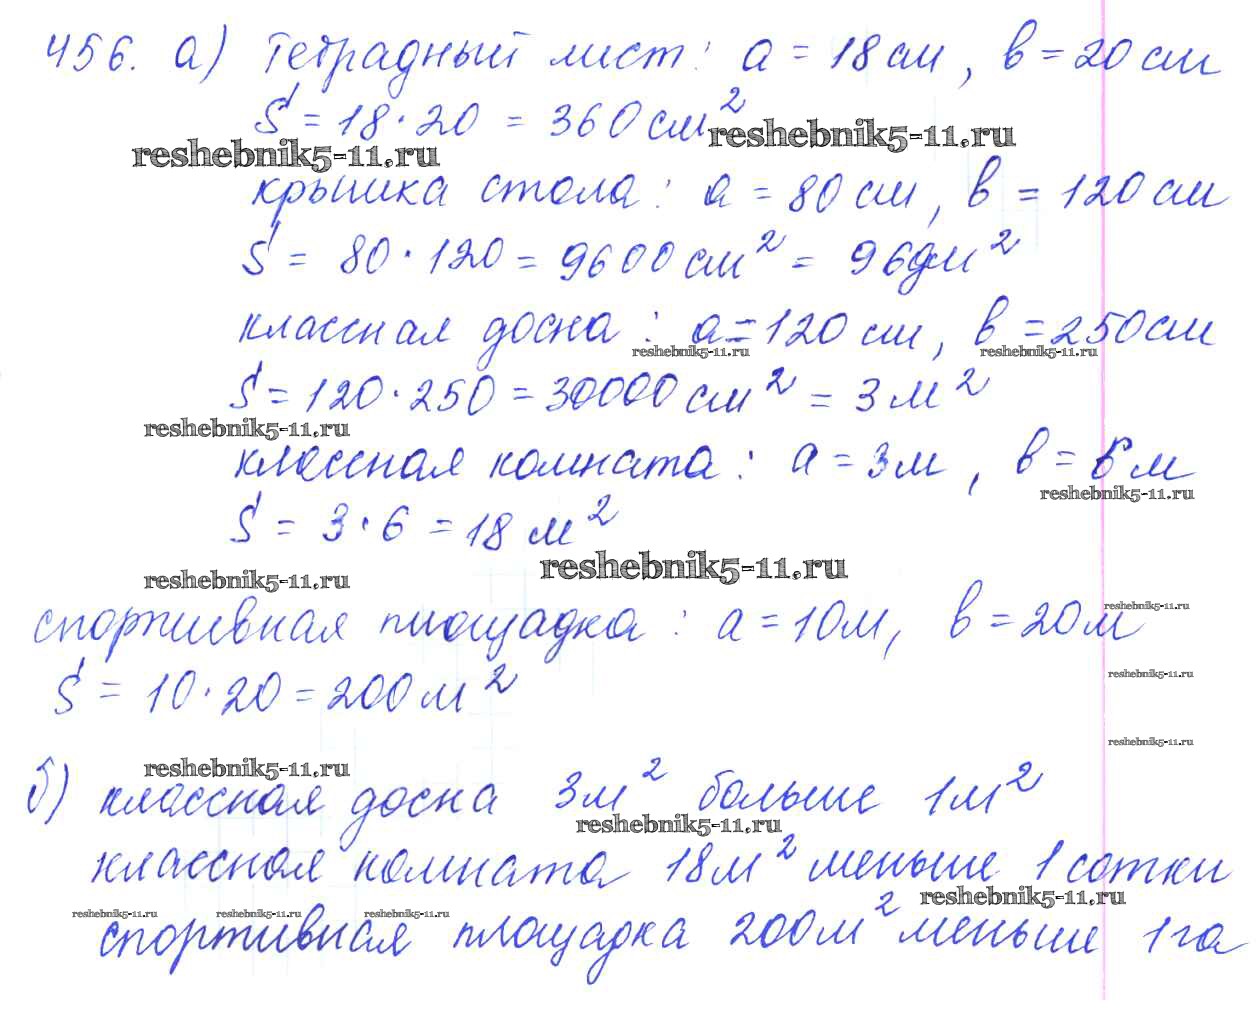 456. а) Тетрадный лист: a = 18 см, b = 20 см
S = 18 · 20 = 360 см²
reshebnik5-11.ru reshebnik5-11.ru
крышка стола: a = 80 см, b = 120 см
S = 80 · 120 = 9600 см² = 96 дм²
классная доска: a = 120 см, b = 250 см
reshebnik5-11.ru reshebnik5-11.ru
S = 120 · 250 = 30000 см² = 3 м²
reshebnik5-11.ru
классная комната: a = 3 м, b = 6 м
reshebnik5-11.ru
S = 3 · 6 = 18 м²
reshebnik5-11.ru reshebnik5-11.ru
спортивная площадка: a = 10 м, b = 20 м
reshebnik5-11.ru
S = 10 · 20 = 200 м²
reshebnik5-11.ru
reshebnik5-11.ru
reshebnik5-11.ru
б) классная доска 3 м² больше 1 м²
reshebnik5-11.ru
классная комната 18 м² меньше 1 сотки
reshebnik5-11.ru
reshebnik5-11.ru reshebnik5-11.ru reshebnik5-11.ru
спортивная площадка 200 м² меньше 1 га